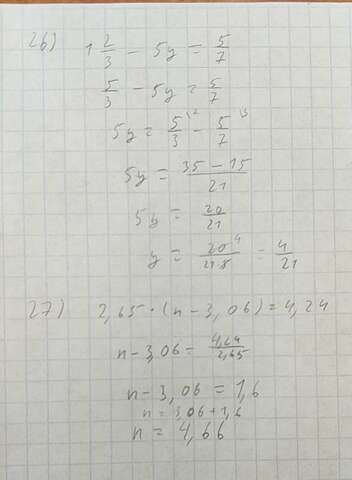 26) 1 2/3 - 5y = 5/7
5/3 - 5y = 5/7
5y = 5/3 \7 - 5/7 \3
5y = (35 - 15)/21
5y = 20/21
y = 20 4/(21·5) = 4/21
27) 2,65 · (n - 3,06) = 4,24
n - 3,06 = 4,24/2,65
n - 3,06 = 1,6
n = 3,06 + 1,6
n = 4,66